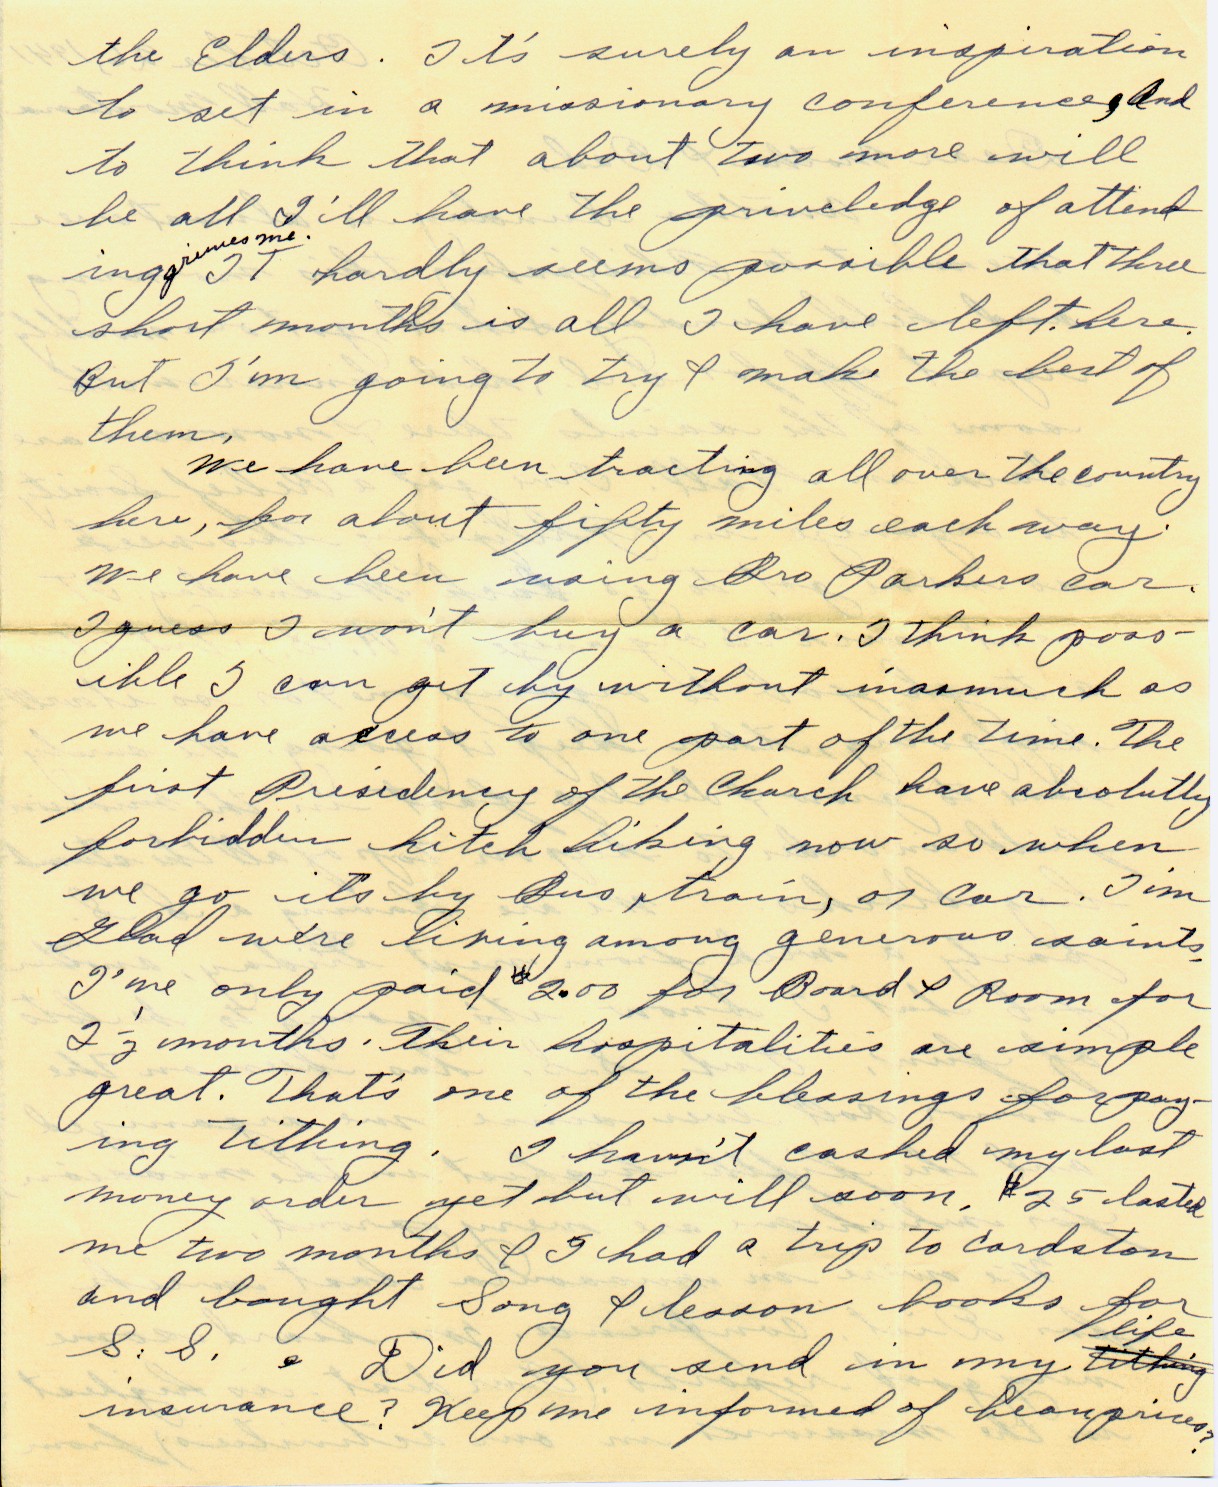 the Elders. It's surely an inspiration
to set in a missionary conference, and
to think that about two more will
be all I'll have the priveledge of attend
ing grieves me. It hardly seems possible that three
short months is all I have left here.
But I'm going to try & make the best of
them.
We have been tracting all over the country
here, for about fifty miles each way.
We have been using Bro Parkers car.
I guess I won't buy a car. I think poss-
ible I can get by without inasmuch as
we have access to one part of the time. The
first Presidency of the Church have absolutly
forbidden hitch hiking now so when
we go it's by Bus, train, or car. I'm
Glad we're living among generous saints.
I've only paid $2.00 for Board & Room for
2 1/2 months. Their hospitalities are simple
great. That's one of the blessings for pay-
ing tithing. I havn't cashed my last
money order yet but will soon. $25 lasted
me two months & I had a trip to Cardston
and bought Song & lesson books for
S. S. Did you send in my tithing life
insurance? Keep me informed of bean prices?